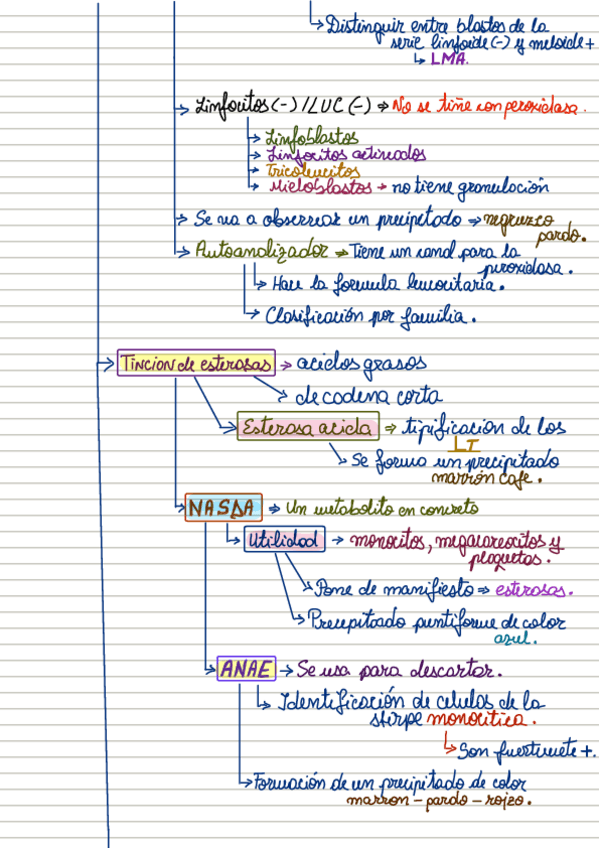 ↳ Distinguir entre blastos de la
serie linfoide (-) y meloide +
↳ LMA.
→ Linfocitos (-) / LUC (-) → No se tiñe con peroxidasa.
↳ Linfoblastos
↳ Linfocitos activados
↳ Tricoleucitos
↳ Mieloblastos → no tiene granulación
→ Se va a observar un precipitado → negruzco
pardo.
→ Autoanalizador → Tiene un canal para la
peroxidasa.
↳ Hace la formula leucocitaria.
↳ Clasificación por familia.
→ Tincion de esterasas → acidos grasos
→ de cadena corta
→ Esterasa acida → tipificación de los
LT
→ Se forma un precipitado
marrón cafe.
→ NASDA → Un metabolito en concreto
↳ Utilidad → monocitos, megacareocitos y
plaquetas.
→ Pone de manifiesto → esterasas.
→ Precipitado puntiforme de color
azul.
→ ANAE → Se usa para descartar.
↳ Identificación de celulas de la
stirpe monocitica.
↳ Son fuertemente +.
→ Formación de un precipitado de color
marron - pardo - rojizo.